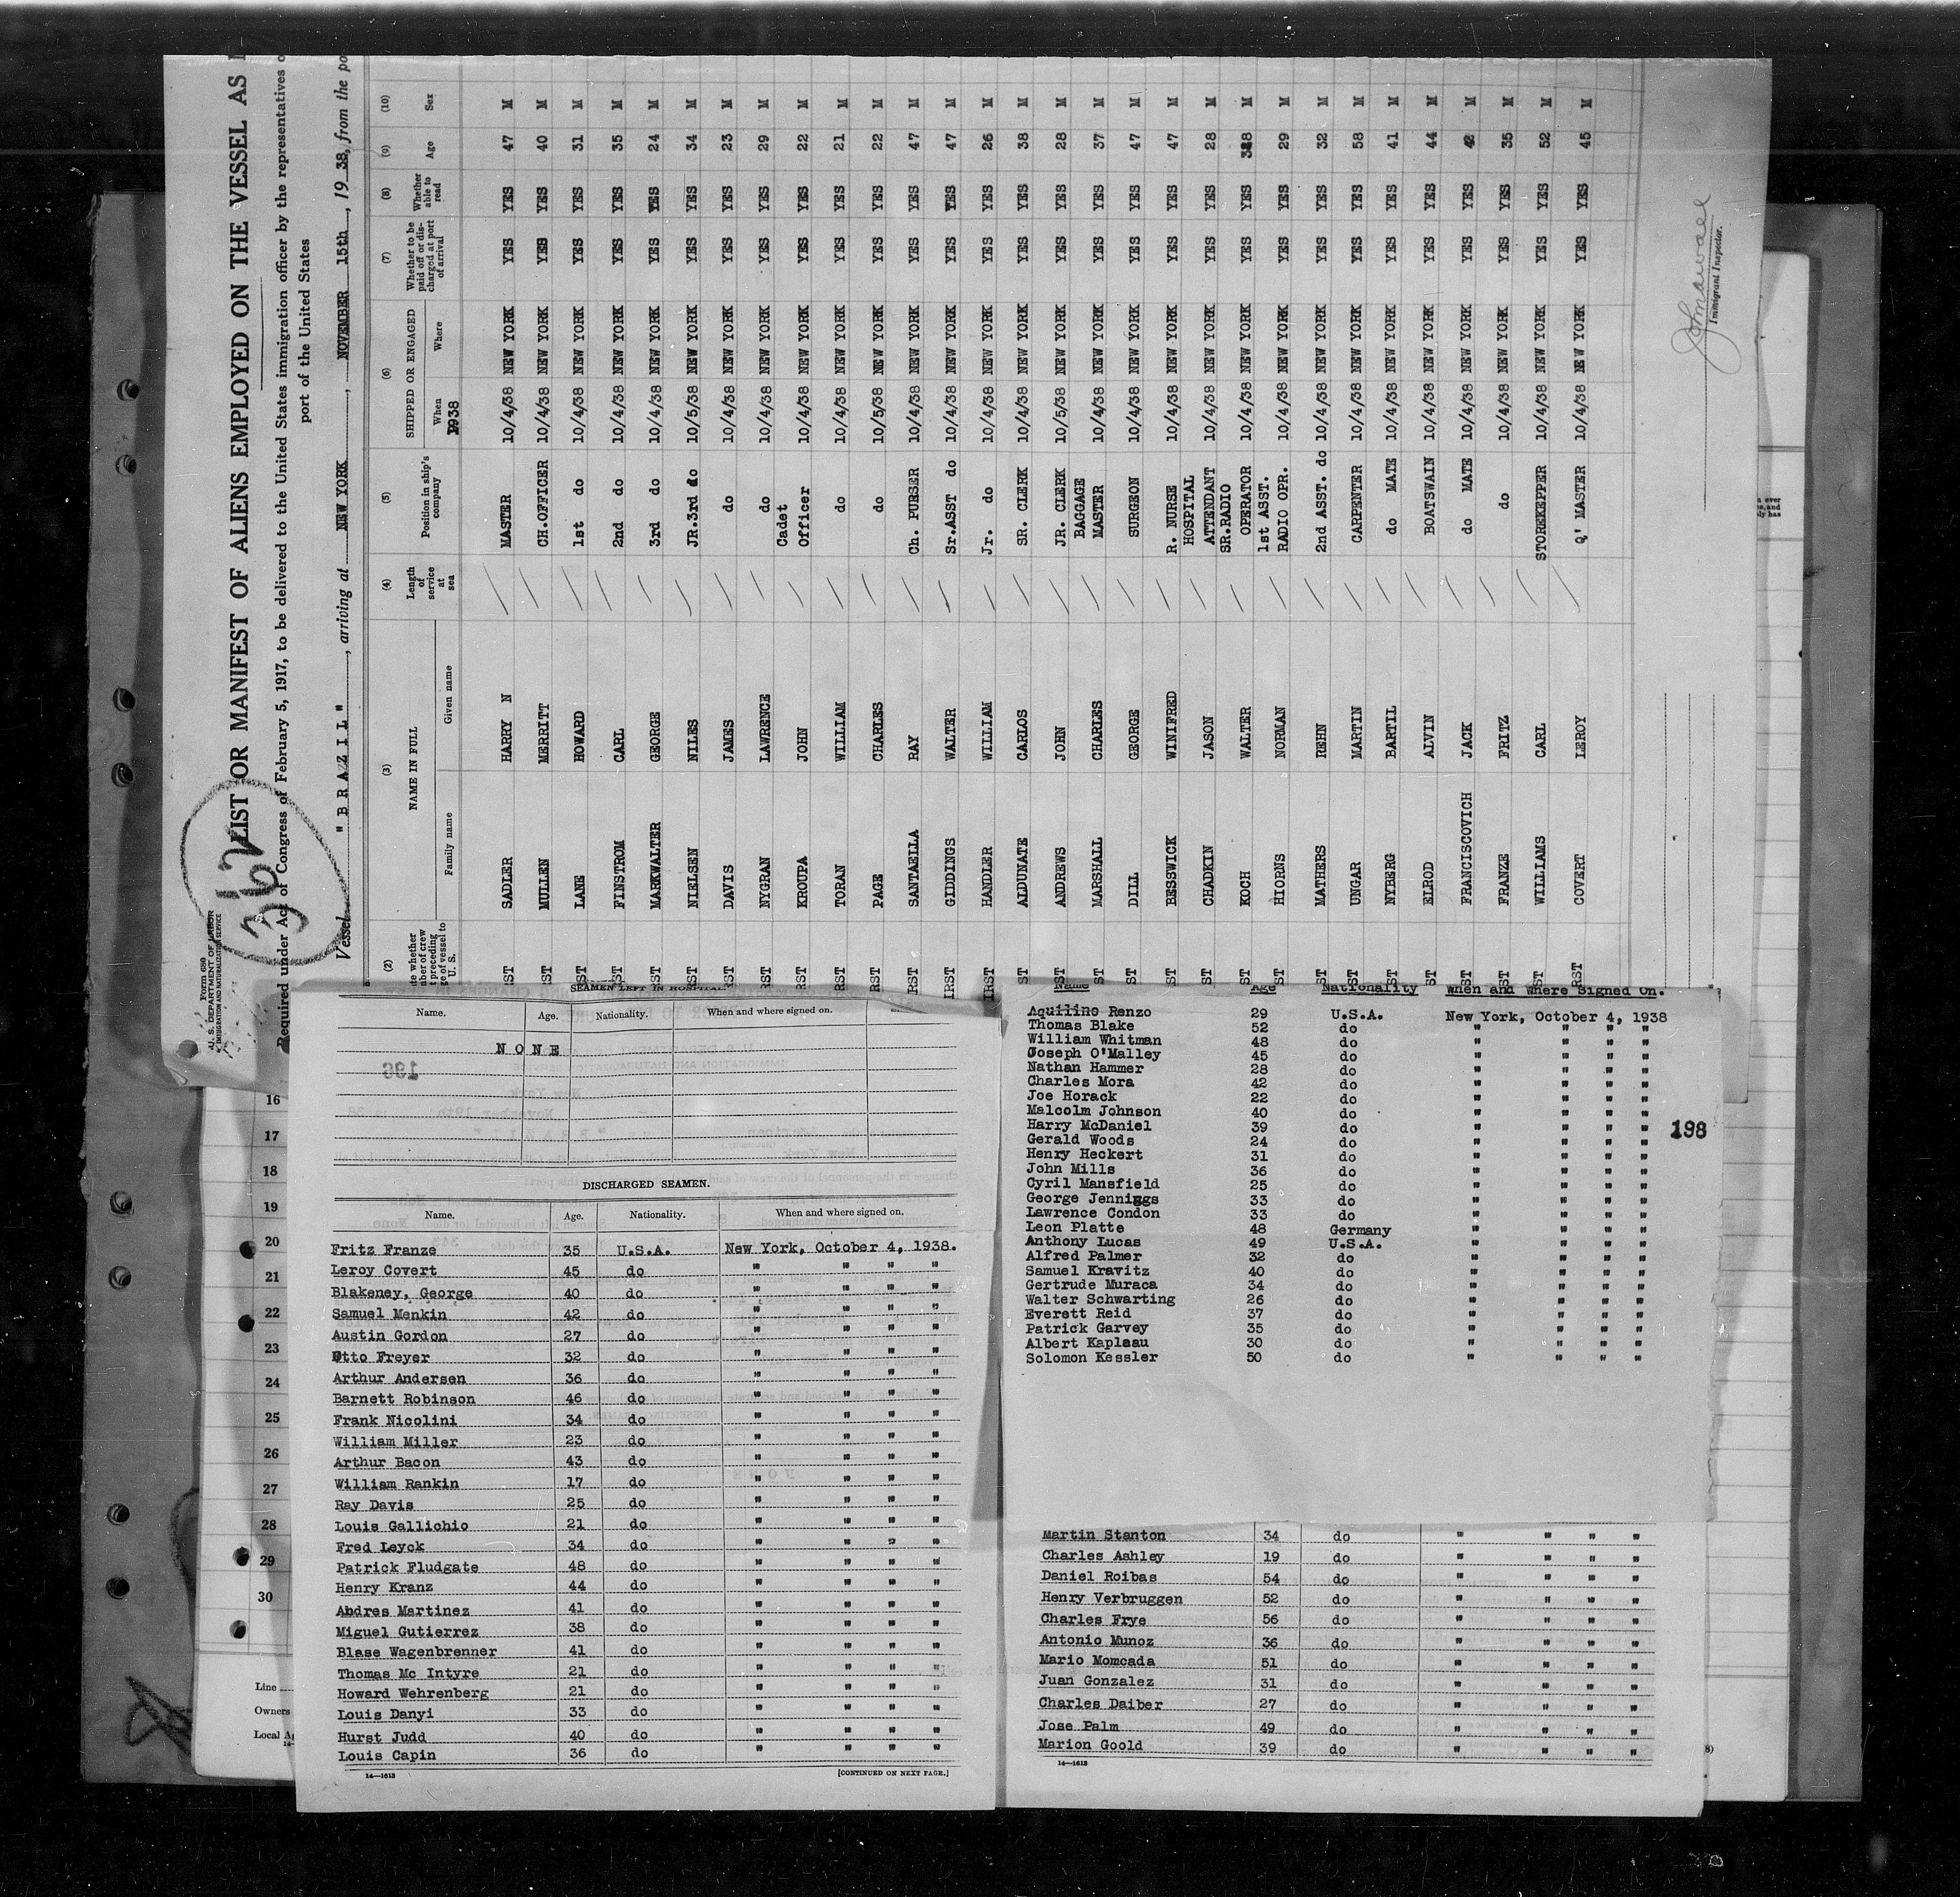 Form 680
U. S. DEPARTMENT OF LABOR
IMMIGRATION AND NATURALIZATION SERVICE
362
LIST OR MANIFEST OF ALIENS EMPLOYED ON THE VESSEL AS
Required under Act of Congress of February 5, 1917, to be delivered to the United States immigration officer by the representatives
port of the United States
Vessel "BRAZIL", arriving at NEW YORK, NOVEMBER 15th, 1938, from the po
(2) (3) (4) (5) (6) (7) (8) (9) (10)
NAME IN FULL Length of service at sea Position in ship's company SHIPPED OR ENGAGED Whether to be paid off or discharged at port of arrival Whether able to read Age Sex
Family name Given name When Where
1938
SADLER HARRY N MASTER 10/4/38 NEW YORK YES YES 47 M
MULLEN MERRITT CH.OFFICER 10/4/38 NEW YORK YES YES 40 M
LANE HOWARD 1st do 10/4/38 NEW YORK YES YES 31 M
FINSTROM CARL 2nd do 10/4/38 NEW YORK YES YES 35 M
MARKWALTER GEORGE 3rd do 10/4/38 NEW YORK YES YES 24 M
NIELSEN NILES JR.3rd do 10/5/38 NEW YORK YES YES 34 M
DAVIS JAMES do 10/4/38 NEW YORK YES YES 23 M
NYGRAN LAWRENCE do 10/4/38 NEW YORK YES YES 29 M
KROUPA JOHN Cadet Officer 10/4/38 NEW YORK YES YES 22 M
TORAN WILLIAM do 10/4/38 NEW YORK YES YES 21 M
PAGE CHARLES do 10/5/38 NEW YORK YES YES 22 M
SANTAELLA RAY Ch. PURSER 10/4/38 NEW YORK YES YES 47 M
GIDDINGS WALTER Sr.ASST do 10/4/38 NEW YORK YES YES 47 M
HANDLER WILLIAM Jr. do 10/4/38 NEW YORK YES YES 26 M
ALDUNATE CARLOS SR. CLERK 10/4/38 NEW YORK YES YES 38 M
ANDREWS JOHN JR. CLERK 10/5/38 NEW YORK YES YES 28 M
MARSHALL CHARLES BAGGAGE MASTER 10/4/38 NEW YORK YES YES 37 M
DILL GEORGE SURGEON 10/4/38 NEW YORK YES YES 47 M
BESSWICK WINIFRED R. NURSE 10/4/38 NEW YORK YES YES 47 M
CHADKIN JASON HOSPITAL ATTENDANT 10/4/38 NEW YORK YES YES 28 M
KOCH WALTER SR.RADIO OPERATOR 10/4/38 NEW YORK YES YES M
HIORNS NORMAN 1st ASST. RADIO OPR. 10/4/38 NEW YORK YES YES 29 M
MATHERS REHN 2nd ASST. do 10/4/38 NEW YORK YES YES 32 M
UNGAR MARTIN CARPENTER 10/4/38 NEW YORK YES YES 58 M
NYBERG BARTIL do MATE 10/4/38 NEW YORK YES YES 41 M
ELROD ALVIN BOATSWAIN 10/4/38 NEW YORK YES YES 44 M
FRANCISCOVICH JACK do MATE 10/4/38 NEW YORK YES YES 42 M
FRANZE FRITZ do 10/4/38 NEW YORK YES YES 35 M
WILLIAMS CARL STOREKEPPER 10/4/38 NEW YORK YES YES 52 M
COVERT LEROY Q' MASTER 10/4/38 NEW YORK YES YES 45 M
Immigrant Inspector.
SEAMEN LEFT IN HOSPITAL
Name. Age. Nationality. When and where signed on.
NONE
DISCHARGED SEAMEN.
Name. Age. Nationality. When and where signed on.
Fritz Franze 35 U.S.A. New York, October 4, 1938.
Leroy Covert 45 do " " " "
Blakeney, George 40 do " " " "
Samuel Menkin 42 do " " " "
Austin Gordon 27 do " " " "
Otto Freyer 32 do " " " "
Arthur Andersen 36 do " " " "
Barnett Robinson 46 do " " " "
Frank Nicolini 34 do " " " "
William Miller 23 do " " " "
Arthur Bacon 43 do " " " "
William Rankin 17 do " " " "
Ray Davis 25 do " " " "
Louis Gallichio 21 do " " " "
Fred Leyck 34 do " " " "
Patrick Fludgate 48 do " " " "
Henry Kranz 44 do " " " "
Abdres Martinez 41 do " " " "
Miguel Gutierrez 38 do " " " "
Blase Wagenbrenner 41 do " " " "
Thomas Mc Intyre 21 do " " " "
Howard Wehrenberg 21 do " " " "
Louis Danyi 33 do " " " "
Hurst Judd 40 do " " " "
Louis Capin 36 do " " " "
14—1613 [CONTINUED ON NEXT PAGE.]
Name Age Nationality When and Where Signed On.
Aquilino Renzo 29 U.S.A. New York, October 4, 1938
Thomas Blake 52 do " " " "
William Whitman 48 do " " " "
Joseph O'Malley 45 do " " " "
Nathan Hammer 28 do " " " "
Charles Mora 42 do " " " "
Joe Horack 22 do " " " "
Malcolm Johnson 40 do " " " "
Harry McDaniel 39 do " " " "
198
Gerald Woods 24 do " " " "
Henry Heckert 31 do " " " "
John Mills 36 do " " " "
Cyril Mansfield 25 do " " " "
George Jennings 33 do " " " "
Lawrence Condon 33 do " " " "
Leon Platte 48 Germany " " " "
Anthony Lucas 49 U.S.A. " " " "
Alfred Palmer 32 do " " " "
Samuel Kravitz 40 do " " " "
Gertrude Muraca 34 do " " " "
Walter Schwarting 26 do " " " "
Everett Reid 37 do " " " "
Patrick Garvey 35 do " " " "
Albert Kaplaau 30 do " " " "
Solomon Kessler 50 do " " " "
Martin Stanton 34 do " " " "
Charles Ashley 19 do " " " "
Daniel Roibas 54 do " " " "
Henry Verbruggen 52 do " " " "
Charles Frye 56 do " " " "
Antonio Munoz 36 do " " " "
Mario Momcada 51 do " " " "
Juan Gonzalez 31 do " " " "
Charles Daiber 27 do " " " "
Jose Palm 49 do " " " "
Marion Goold 39 do " " " "
14—1613
16
17
18
19
20
21
22
23
24
25
26
27
28
29
30
Line
Owners
Local